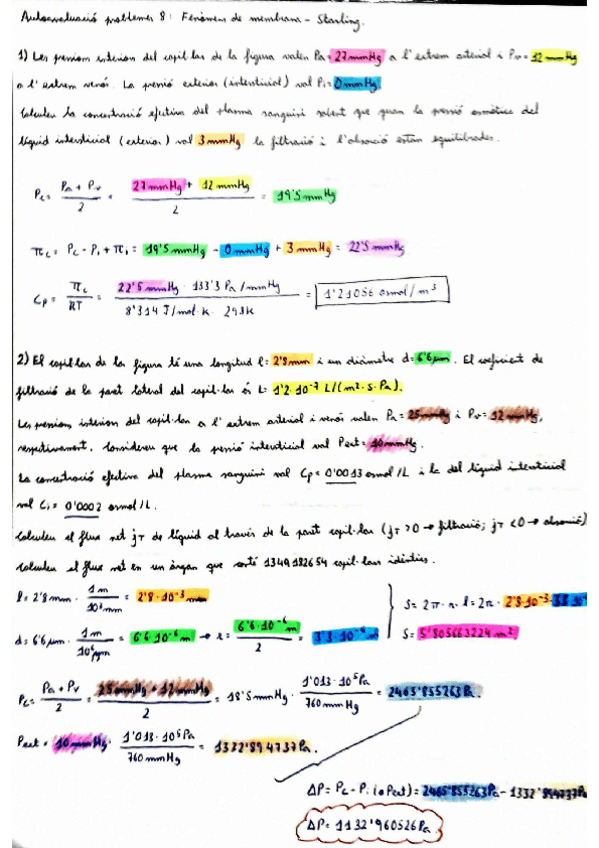 Autoavaluació problemes 8: Fenòmens de membrana - Starling.
1) Les pressions interiors del capil·lar de la figura valen Pa = 27 mmHg a l'extrem arterial i Pv = 12 mmHg
a l'extrem venós. La pressió exterior (intersticial) val Pi = 0 mmHg.
Calculeu la concentració efectiva del plasma sanguini sabent que quan la pressió osmòtica del
líquid intersticial (exterior) val 3 mmHg la filtració i l'absorció estan equilibrades.
Pc = (Pa + Pv)/2 = (27 mmHg + 12 mmHg)/2 = 19'5 mmHg
πc = Pc - Pi + πi = 19'5 mmHg - 0 mmHg + 3 mmHg = 22'5 mmHg
Cp = πc/RT = (22'5 mmHg · 133'3 Pa/mmHg)/(8'314 J/mol·K · 293K) = 1'21056 osmol/m³
2) El capil·lar de la figura té una longitud l = 2'8 mm i un diàmetre d = 6'6 μm. El coeficient de
filtració de la paret lateral del capil·lar és L = 1'2·10⁻⁷ L/(m²·s·Pa).
Les pressions interiors del capil·lar a l'extrem arterial i venós valen Pa = 25 mmHg i Pv = 12 mmHg,
respectivament. Considereu que la pressió intersticial val Pext = 10 mmHg.
La concentració efectiva del plasma sanguini val Cp = 0'0013 osmol/L i la del líquid intersticial
val Ci = 0'0002 osmol/L.
Calculeu el flux net jT de líquid al través de la paret capil·lar (jT > 0 → filtració; jT < 0 → absorció)
Calculeu el flux net en un òrgan que conté 1349182654 capil·lars idèntics.
l = 2'8 mm · 1 m/10³ mm = 2'8·10⁻³ m
d = 6'6 μm · 1 m/10⁶ μm = 6'6·10⁻⁶ m → r = 6'6·10⁻⁶ m/2 = 3'3·10⁻⁶ m
S = 2π·r·l = 2π· 2'8·10⁻³ ·
S = 5'805663224 m²
Pc = (Pa + Pv)/2 = (25 mmHg + 12 mmHg)/2 = 18'5 mmHg · 1'013·10⁵ Pa/760 mmHg = 2465'855263 Pa.
Pext = 10 mmHg · 1'013·10⁵ Pa/760 mmHg = 1332'894737 Pa.
ΔP = Pc - Pi (o Pext) = 2465'855263 Pa - 1332'894737 Pa
ΔP = 1132'960526 Pa.